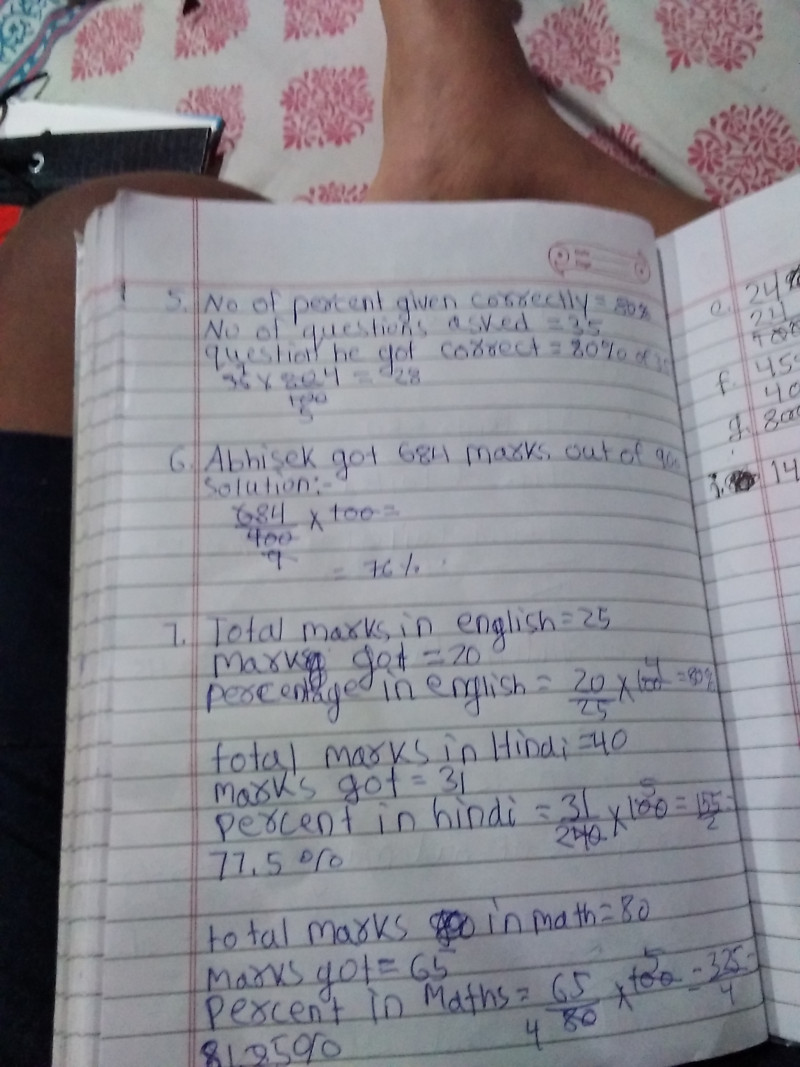 5. No of percent given correctly = 80%
No of questions asked = 35
question he got correct = 80% of 35
35 × 80 4 = 28
100
5
6. Abhisek got 684 marks out of 900
Solution:-
684/900 × 100 =
9
= 76%
7. Total marks in english = 25
marks got = 20
percentage in english = 20/25 × 100 4 = 80%
total marks in Hindi = 40
marks got = 31
percent in hindi = 31/2 40 × 100 5 = 155/2 =
77.5 %
total marks in math = 80
marks got = 65
percent in Maths = 65/4 80 × 100 5 = 325/4 =
81.25%
24
24
f. 45
40
g. 800
14